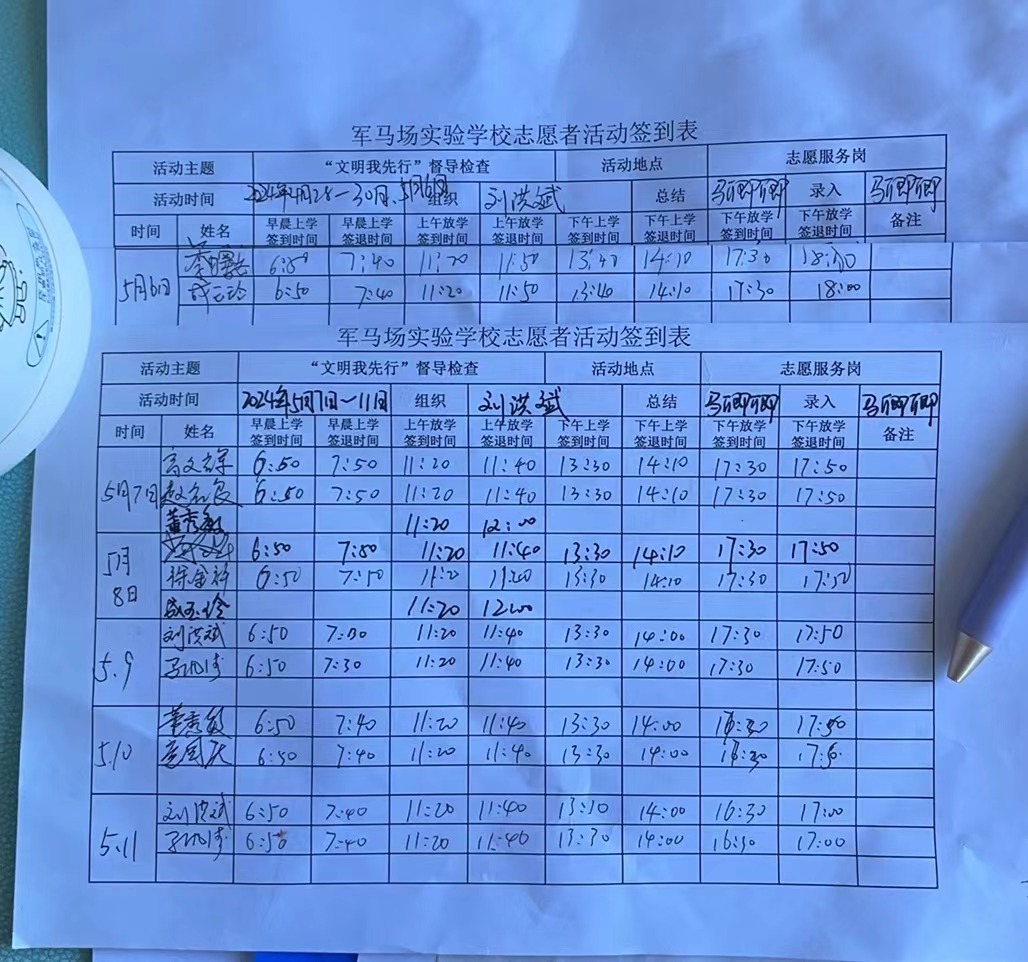 军马场实验学校志愿者活动签到表
活动主题 “文明我先行”督导检查 活动地点 志愿服务岗
活动时间 2024年4月28-30日、5月6日 组织 刘洪斌 总结 马卿卿 录入 马卿卿
时间 姓名 早晨上学签到时间 早晨上学签退时间 上午放学签到时间 上午放学签退时间 下午上学签到时间 下午上学签退时间 下午放学签到时间 下午放学签退时间 备注
5月6日 6:50 7:40 11:20 11:50 13:40 14:10 17:30 18:00
6:50 7:40 11:20 11:50 13:40 14:10 17:30 18:00
军马场实验学校志愿者活动签到表
活动主题 “文明我先行”督导检查 活动地点 志愿服务岗
活动时间 2024年5月7日-11日 组织 刘洪斌 总结 马卿卿 录入 马卿卿
时间 姓名 早晨上学签到时间 早晨上学签退时间 上午放学签到时间 上午放学签退时间 下午上学签到时间 下午上学签退时间 下午放学签到时间 下午放学签退时间 备注
5月7日 6:50 7:50 11:20 11:40 13:30 14:10 17:30 17:50
6:50 7:50 11:20 11:40 13:30 14:10 17:30 17:50
董秀敏 11:20 12:00
5月8日 6:50 7:50 11:20 11:40 13:30 14:10 17:30 17:50
6:50 7:50 11:20 11:40 13:30 14:10 17:30 17:50
11:20 12:00
5.9 刘洪斌 6:50 11:20 11:40 13:30 14:00 17:30 17:50
6:50 7:30 11:20 11:40 13:30 14:00 17:30 17:50
5.10 董秀敏 6:50 7:40 11:20 11:40 13:30 14:00 17:50
6:50 7:40 11:20 11:40 13:30 14:00
5.11 刘洪斌 6:50 7:40 11:20 11:40 13:30 14:00 16:30 17:00
6:50 7:40 11:20 11:40 13:30 14:00 16:30 17:00